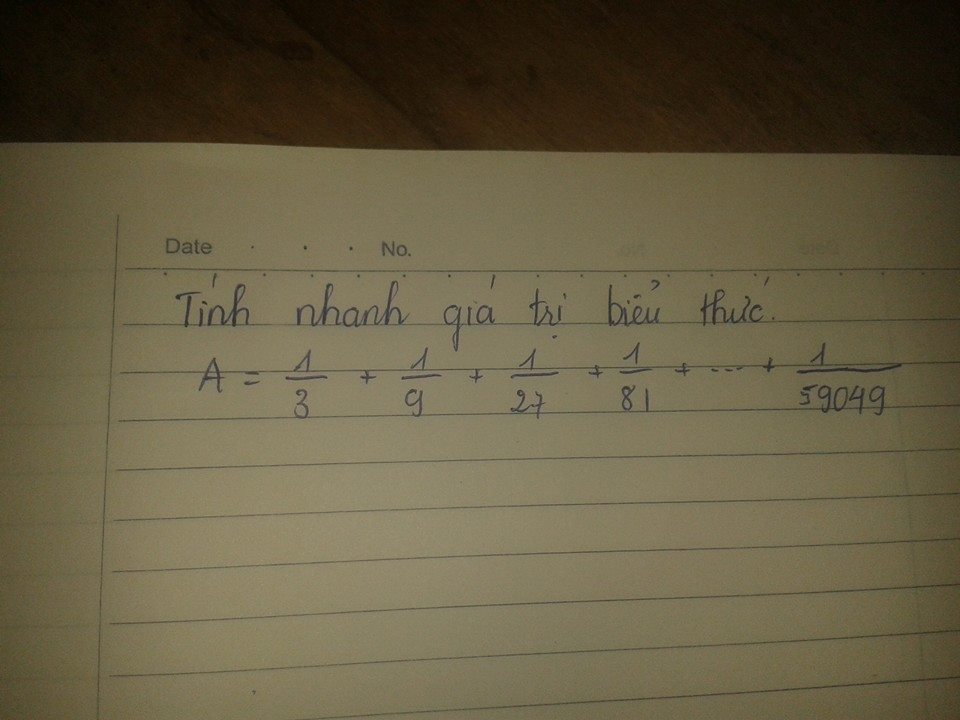 Date . . . No.
Tính nhanh giá trị biểu thức.
A = 1/3 + 1/9 + 1/27 + 1/81 + ... + 1/59049